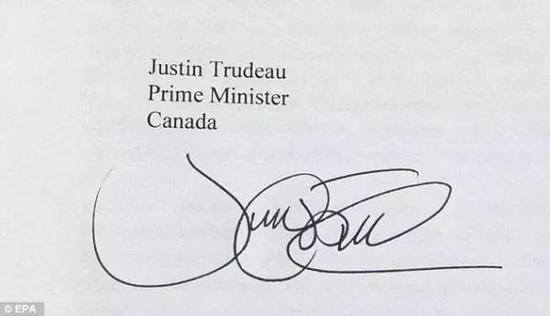 Justin Trudeau
Prime Minister
Canada
© EPA